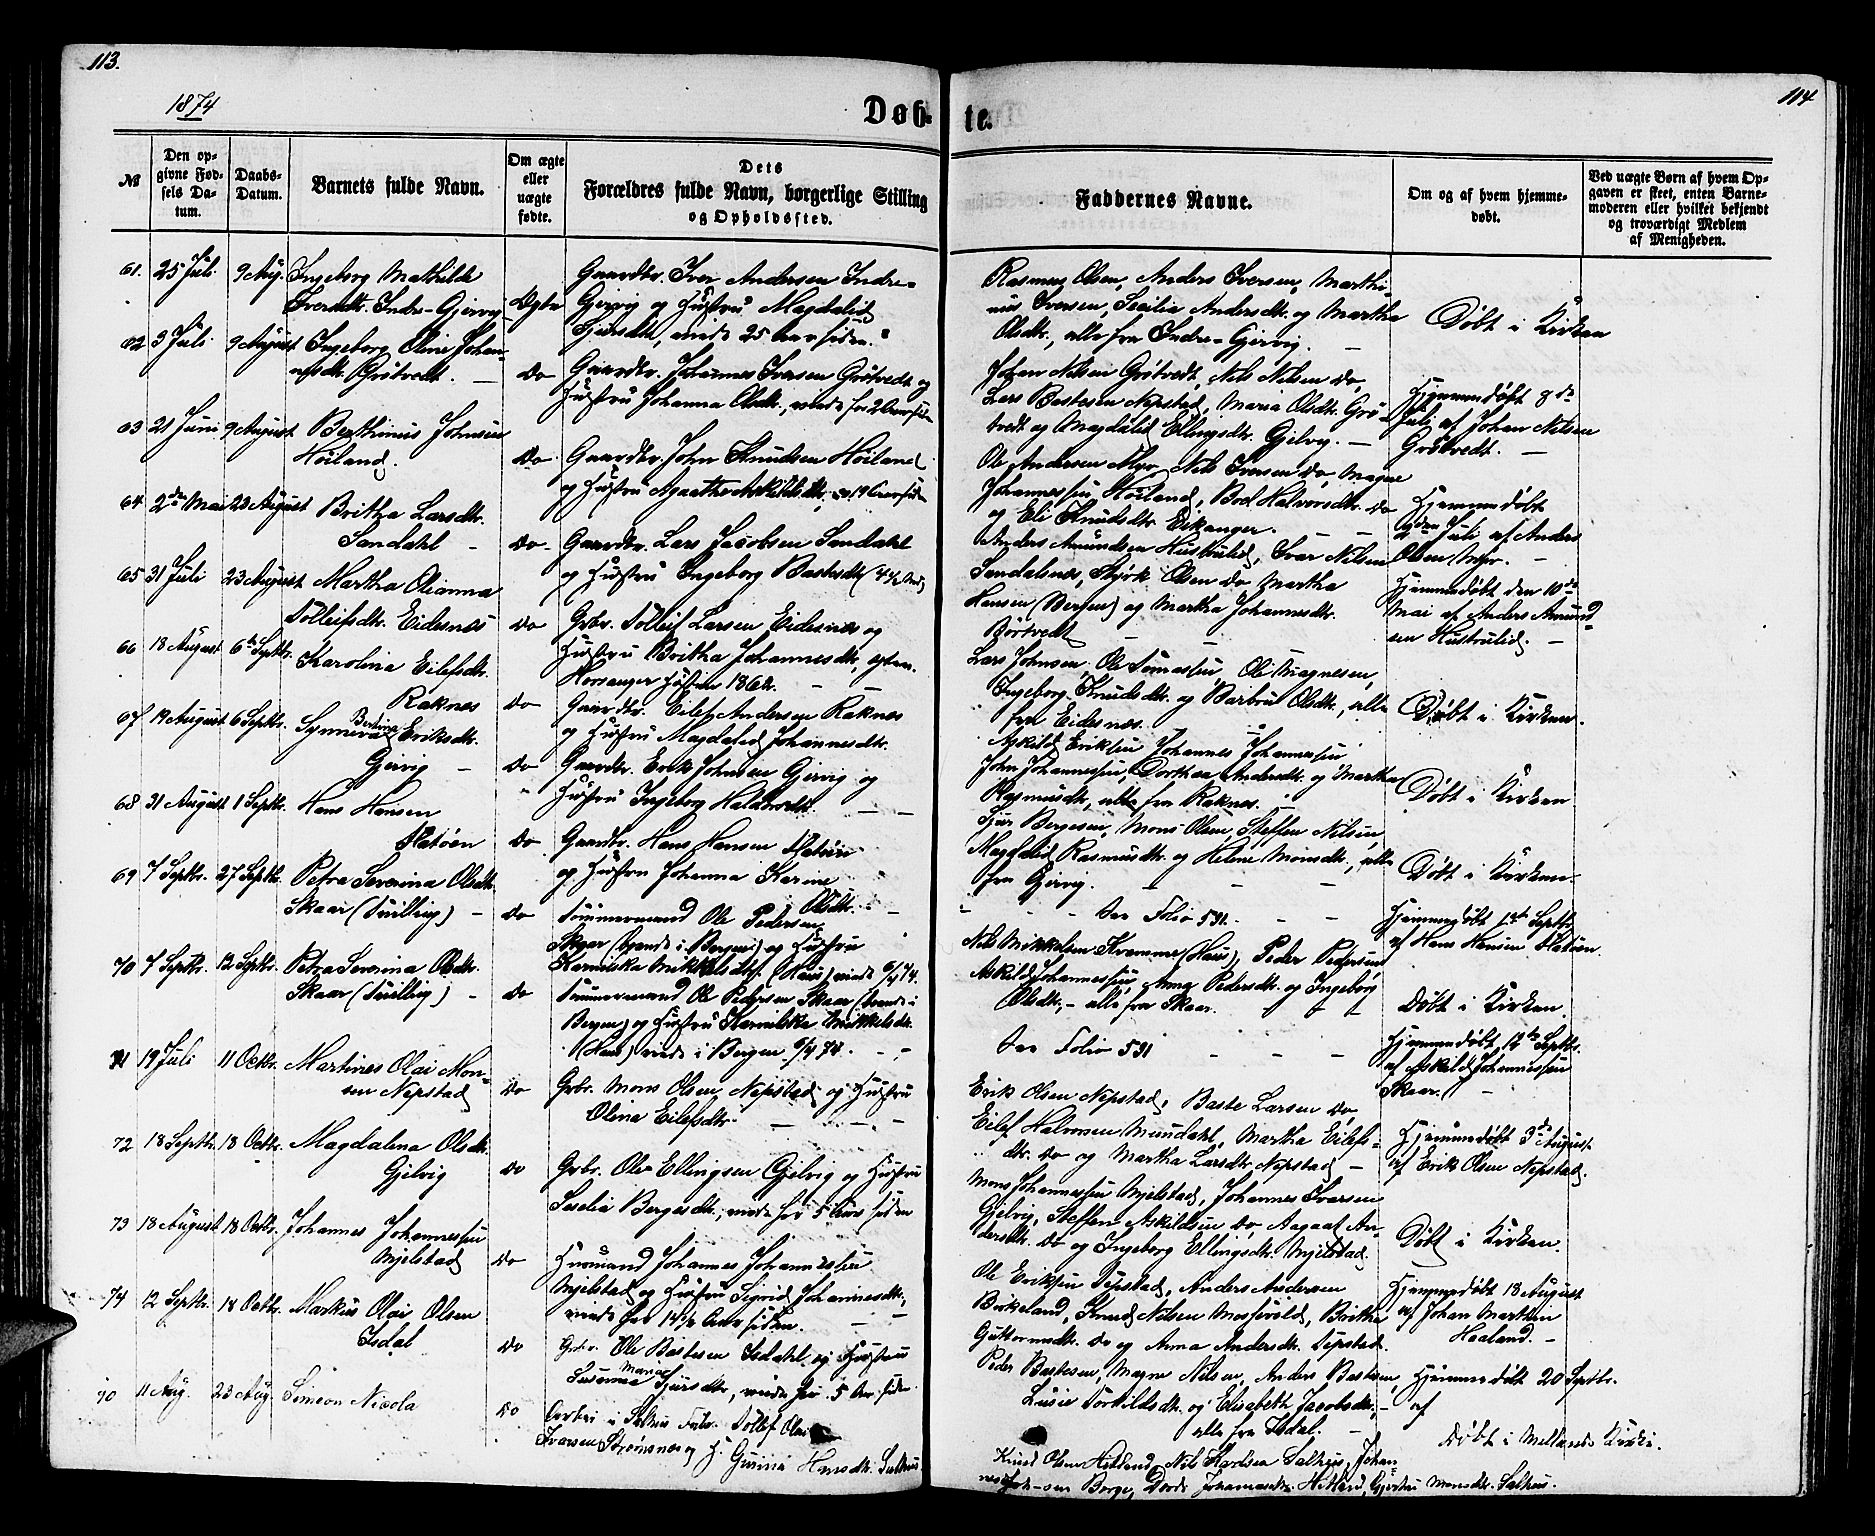 113.
1874
Døb-
№
Den op-
givne Fød-
sels Da-
tum.
Daabs-
Datum.
Barnets fulde Navn.
Om ægte
eller
uægte
fødte.
Dets
Forældres fulde Navn, borgerlige Stilling
og Opholdssted.
61. 25 Juli 9 Aug. Ingeborg Mathilde
Iversdtr. Indre-Gjervig
Ægte
Gaardbr. Iver Andersen Indre-
Gjervig og Hustru Magdalid
viede 25 Aar siden.
62 3 Juli 9 August Ingeborg Oline Johan-
nesdtr. Grötvedt. —
do
Gaardbr. Johannes Iversen Grötvedt og
Hustru Johanna Olsdtr., viede for 2 Aar siden
63 21 Juni 9 August Berthinius Johnsen
Höiland.
do
Gaardbr. John Knudsen Höiland
og Hustru Agathe Askildsdtr, 19 Aar siden
64 2den Mai 23 August Britha Larsdtr.
Sandahl —
do
Gaardbr. Lars Jacobsen Sandahl
og Hustru Ingeborg Bastesdtr
65 31 Juli 23 August Martha Olianna
Tolleifsdtr. Eidesnes
do
Grbr. Tolleif Larsen Eidesnes og
Hustru Britha Johannesdtr,
Hosanger 1862.
66 18 August 6te Septbr. Karolina Eilefsdtr.
Raknes
do
Gaardbr. Eilef Andersen Raknes
og Hustru Magdalid Johannesdtr.
67 19 August 6 Septbr. Synneva Bertina Eriksdtr.
Gjervig —
do
Gaardbr. Erik Johnsen Gjervig og
Hustru Ingeborg
68 31 August 1 Septbr. Hans Hansen
Hatöen
do
Gaardbr. Hans Hansen Hatöen
og Hustru Johanna Karine
Olsdtr.
69 7 Septbr. 27 Septbr. Petra Severina Olsdtr.
Skaar (Tvilling) —
do
Tömmermand Ole Pedersen
Skaar (boende i Bergen) og Hustru
Mikkelsdtr. (Haus) viede 6/4 74.
70 7 Septbr. 12 Septbr. Petra Severina Olsdtr.
Skaar (Tvilling) —
do
Tömmermand Ole Pedersen Skaar (boende i
Bergen) og Hustru Mikkelsdtr.
(Haus) viede i Bergen 6/4 74.
71 19 Juli 11 Octbr. Martines Olai Mon-
sen Nepstad
do
Grbr. Mons Olsen Nepstad og Hustru
Olina Eilefsdtr.
72 18 Septbr. 18 Octbr. Magdalena Olsdtr.
Gjelvig
do
Grbr. Ole Ellingsen Gjelvig og Hustru
Seselia Bergesdtr., viede for 5 Aar siden
73 18 August 18 Octbr. Johannes Johannessen
Mjelstad
do
Huusmand Johannes Johannessen
Mjelstad og Hustru Sigrid Johannesdtr.,
viede for 14½ Aar siden.
74 12 Septbr. 18 Octbr. Markus Olai Olsen
Isdal
do
Grbr. Ole Bastesen Isdahl og Hustru
Susanna Maria Sjursdtr., viede for 5 Aar siden
70 11 Aug. 23 Aug. Simeon Nicola
do
Arbei i Salhus Tollef Olai
Ivarsen Strömsnes og H. Gurine Hansdtr. Salhus
114
te.
Faddernes Navne.
Om og af hvem hjemme-
døbt.
Ved uægte Børn af hvem Op-
gaven er skeet, enten Barne-
moderen eller hvilket bekjendt
og troværdigt Medlem
af Menigheden.
Rasmus Olsen, Anders Iversen, Marthi-
nus Iversen, Secilia Andersdtr. og Martha
Olsdtr., alle fra Indre-Gjervig.
Döbt i Kirken
Johan Nilsen Grötvedt, Nils Nilsen do,
Lars Bastesen Nepstad, Maria Olsdtr. Grö-
tvedt og Magdalid Ellingsdtr. Gjelvig. —
Hjemmedöbt 8de
Juli af Johan Nilsen
Grötvedt. —
Ole Andersen Myr, Nils Iversen do, Magne
Johannessen Höiland, Brel Halvorsdtr. do
og Eli Knudsdtr. Eikanger. —
Hjemmedöbt
2den Juli af Anders
Olsen Myr. —
Anders Amundsen Hustrulid, Ivar Nilsen
Sandalsnes, Styrk Olsen do Martha
Hansen (Bergen) og Martha Johannesdtr.
Börtvedt
Hjemmedöbt den 10de
Mai af Anders Amund-
sen Hustrulid. —
Lars Johnsen Ole Tomassen, Ole Magnesen,
Ingeborg Knudsdtr. og Barbru Olsdtr., alle
fra Eidesnes.
Döbt i Kirken.
Askild Eriksen Johannes Johannessen
John Johannessen, Dorthea Andersdtr. og Martha
Rasmusdtr, alle fra Raknes.
Döbt i Kirken
Sjur Bergesen, Mons Olsen, Steffen Nilsen,
Magdalid Rasmusdtr. og Helene Monsdtr., alle
fra Gjervig.
Döbt i Kirken.
See Folio 531.
Hjemmedöbt 1ste Septbr.
af Hans Hansen Hatöen.
Nils Mikkelsen Kramme (Haus), Peder Pedersen
Askild Johannessen, Anna Pedersdtr. og Ingeborg
Olsdtr, - alle fra Skaar.
Döbt i Kirken.
See Folio 531
Hjemmedöbt 12te Septbr.
af Askild Johannessen
Skaar.
Erik Olsen Nepstad, Baste Larsen do,
Eilef Halvorsen Mundahl, Martha Eilefs-
dtr. do og Martha Larsdtr Nepstad —
Hjemmedöbt 3de August
af Erik Olsen Nepstad.
Mons Johannessen Mjelstad, Johannes Ivarsen
Gjelvig, Steffen Askildsen do, Aagaat An-
dersdtr. do og Ingeborg Ellingsdtr. Mjelstad.
Döbt i Kirken.
Ole Eriksen Tepstad, Anders Andersen
Birkeland, Knud Nilsen Britha
Guttormsdtr. do og Anna Andersdtr. Tepstad.
Hjemmedöbt 18 August
af Johan Martin
Haaland. —
Peder Bastesen, Magne Nilsen, Anders Bastesen,
Lusie Torkildsdtr. og Elisabeth Jacobsdtr.,
alle fra Isdal.
Hjemmedöbt 20 Septbr.
af
Knud Olsen Hitland, Nils Karlsen Salhus, Johan-
nes Borge, Dorde Johannesdtr. Hitland, Gjertru Monsdtr. Salhus.
Döbt i Mellands Kirke.